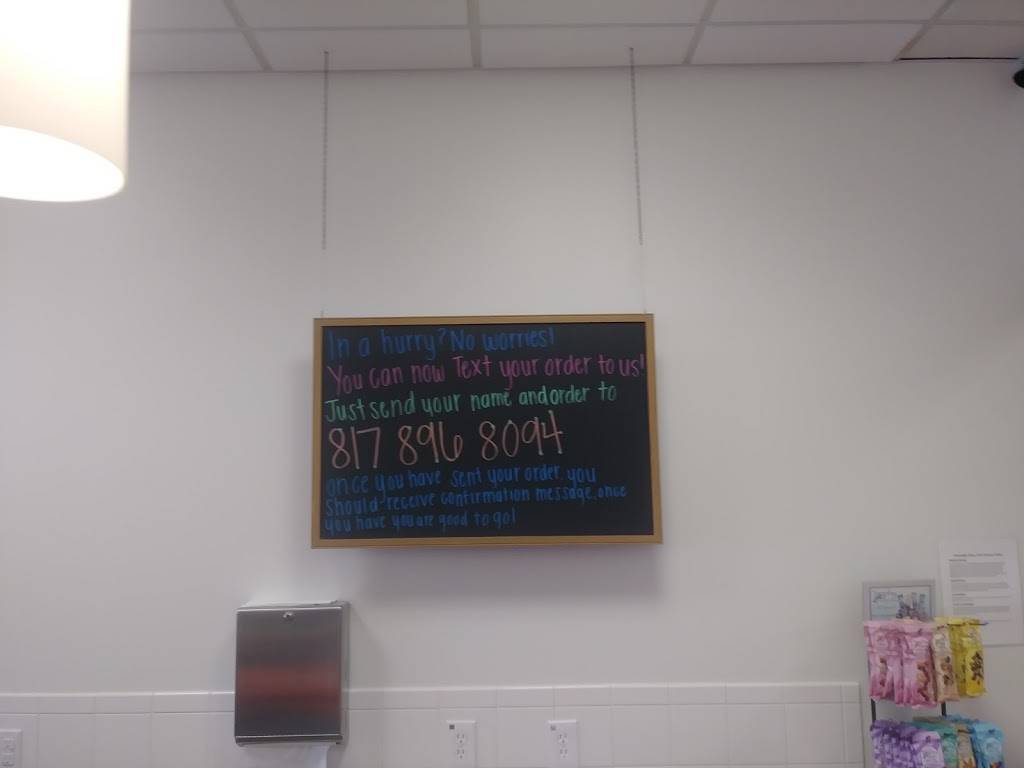 In a hurry? No worries!
You can now Text your order to us!
Just send your name and order to
817 896 8094
once you have sent your order, you
should receive confirmation message, once
you have you are good to go!